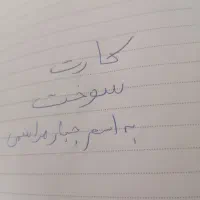 کارت
سوخت
به اسم جبار مرامی